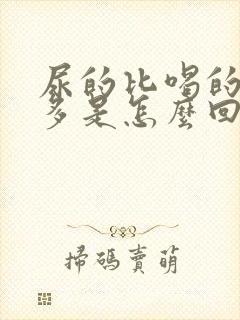 尿的比喝的
多是怎麼回
掃碼賣萌